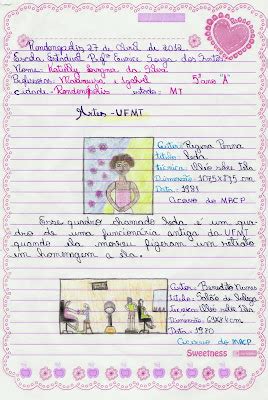 Rondonópolis 27 de Abril de 2012
Escola Estadual Profª Eunice Souza dos Santos
Nome: Ketully da Silva
Professora: e Izabel 5º ano "A"
cidade: Rondonópolis estado: MT
Artes - UFMT
Autor: Regina Penna
Titulo: Leda
técnica: óleo sobre tela
Dimensão: 107,5x87,5 cm
Data: 1981
Acervo do MACP
Esse quadro chamado Leda é um qua-
dro de uma funcionária antiga da UFMT
quando ela morreu fizeram um retrato
em homenagem a ela.
Autor: Benedito Nunes
Titulo: Salão de Beleza
técnica: óleo sobre tela
Dimensão:
Data: 1980
Acervo do MACP
Sweetness